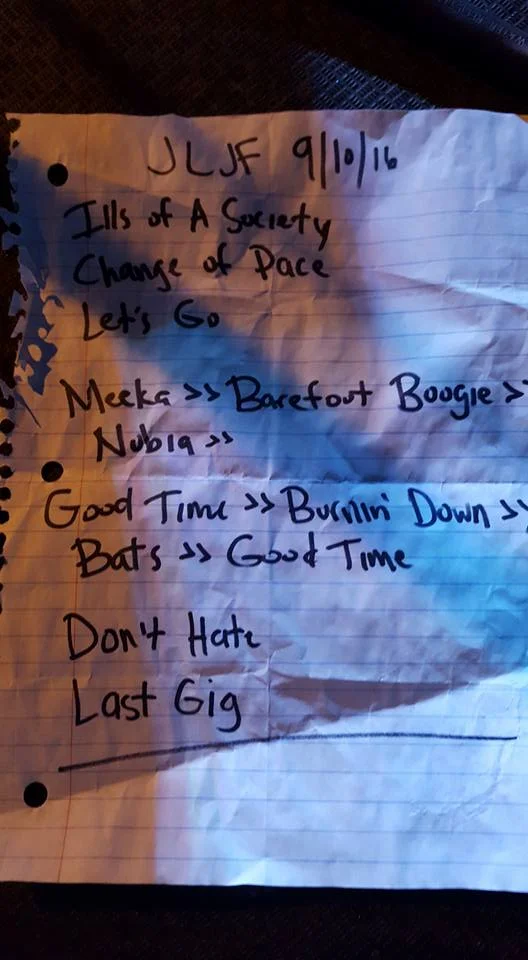 JLJF 9/10/16
Ills of A Society
Change of Pace
Let's Go
Meeka >> Barefoot Boogie >
Nubia >>
Good Time >> Burnin' Down >>
Bats >> Good Time
Don't Hate
Last Gig